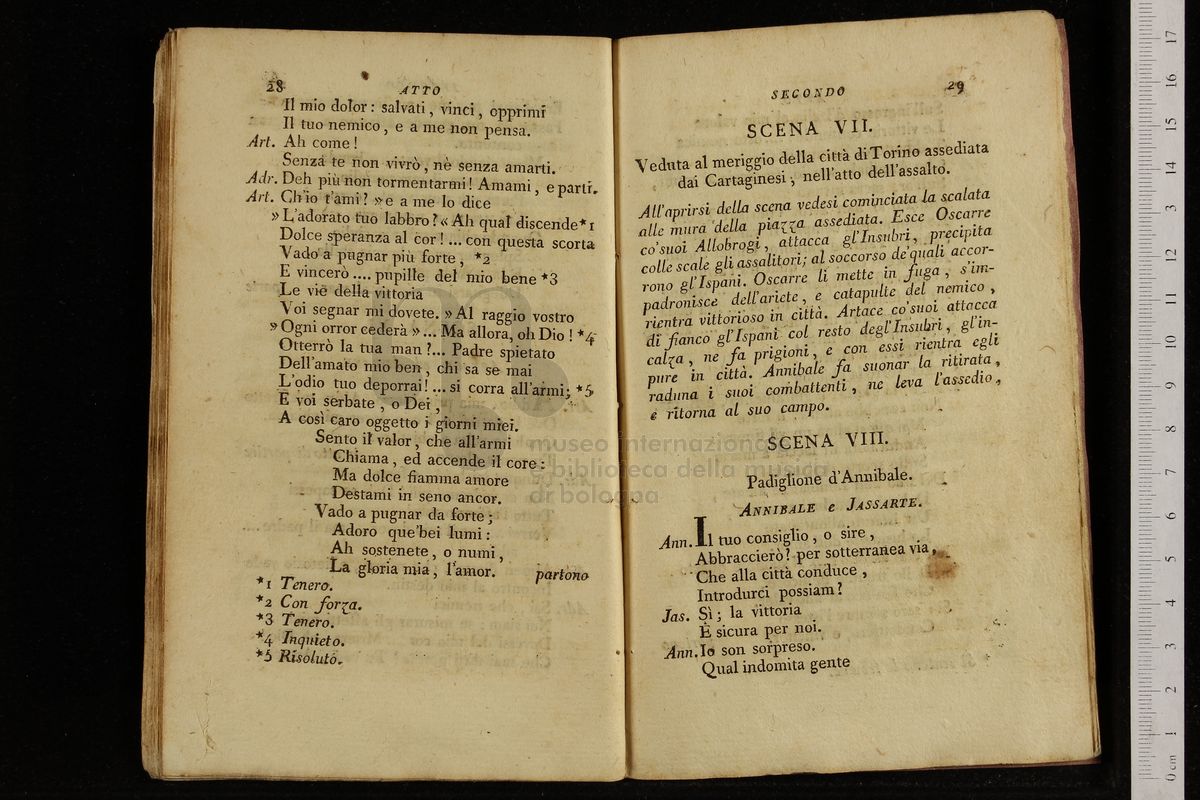 28
ATTO
Il mio dolor : salvati , vinci , opprimi
Il tuo nemico , e a me non pensa.
Art. Ah come !
Senza te non vivrò , nè senza amarti.
Adr. Deh più non tormentarmi ! Amami , e parti.
Art. Ch'io t'ami ? » e a me lo dice
» L'adorato tuo labbro ? « Ah qual discende *1
Dolce speranza al cor ! ... con questa scorta
Vado a pugnar più forte , *2
E vincerò .... pupille del mio bene *3
Le vie della vittoria
Voi segnar mi dovete. » Al raggio vostro
» Ogni orror cederà » ... Ma allora, oh Dio ! *4
Otterrò la tua man ?... Padre spietato
Dell'amato mio ben , chi sa se mai
L'odio tuo deporrai! ... si corra all'armi; *5
E voi serbate , o Dei ,
A così caro oggetto i giorni miei.
Sento il valor , che all'armi
Chiama , ed accende il core :
Ma dolce fiamma amore
Destami in seno ancor.
Vado a pugnar da forte ;
Adoro que'bei lumi :
Ah sostenete , o numi ,
La gloria mia , l'amor. partono
*1 Tenero.
*2 Con forza.
*3 Tenero.
*4 Inquieto.
*5 Risoluto.
SECONDO
29
SCENA VII.
Veduta al meriggio della città di Torino assediata
dai Cartaginesi , nell'atto dell'assalto.
All'aprirsi della scena vedesi cominciata la scalata
alle mura della piazza assediata. Esce Oscarre
co'suoi Allobrogi , attacca gl'Insubri , precipita
colle scale gli assalitori; al soccorso de'quali accor-
rono gl'Ispani. Oscarre li mette in fuga , s'im-
padronisce dell'ariete , e catapulte del nemico ,
rientra vittorioso in città. Artace co'suoi attacca
di fianco gl'Ispani col resto degl'Insubri , gl'in-
calza , ne fa prigioni , e con essi rientra egli
pure in città. Annibale fa suonar la ritirata ,
raduna i suoi combattenti , ne leva l'assedio ,
e ritorna al suo campo.
SCENA VIII.
Padiglione d'Annibale.
ANNIBALE e JASSARTE.
Ann. Il tuo consiglio , o sire ,
Abbraccierò ? per sotterranea via ,
Che alla città conduce ,
Introdurci possiam ?
Jas. Sì ; la vittoria
È sicura per noi.
Ann. Io son sorpreso.
Qual indomita gente
museo internazionale
e biblioteca della musica
di bologna
17
16
15
14
13
12
11
10
9
8
7
6
5
4
3
2
1
0 cm